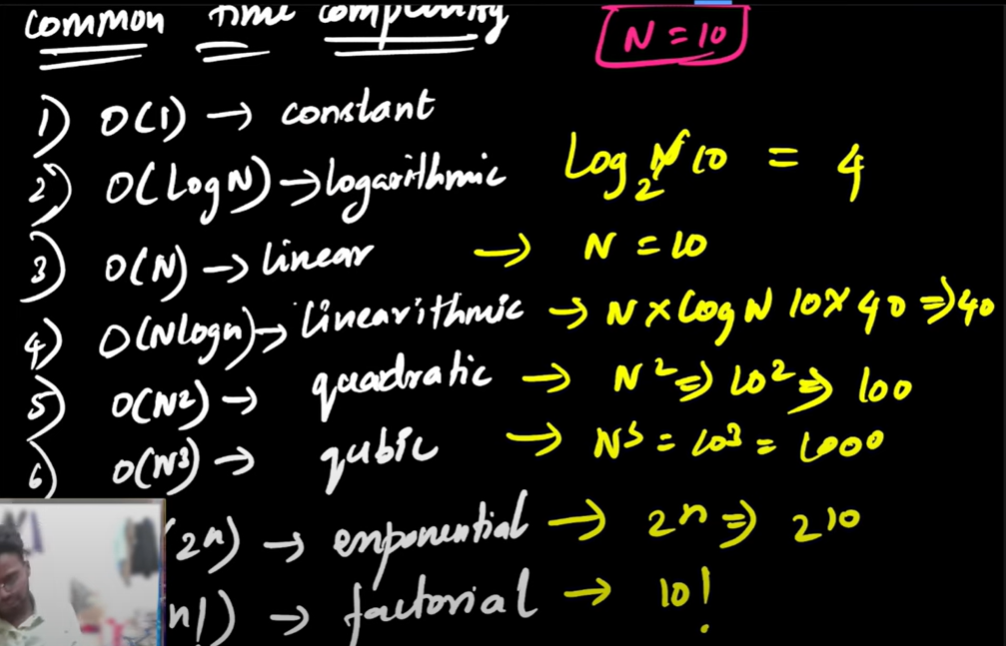 common time complexity N = 10
1) O(1) → constant
2) O(LogN) → logarithmic Log₂N 10 = 4
3) O(N) → linear → N = 10
4) O(Nlogn) → linearithmic → N × Log N 10 × 40 ⇒ 40
5) O(N2) → quadratic → N² ⇒ 10² ⇒ 100
6) O(N3) → qubic → N³ = 10³ = 1000
(2n) → exponential → 2n ⇒ 210
n!) → factorial → 10!